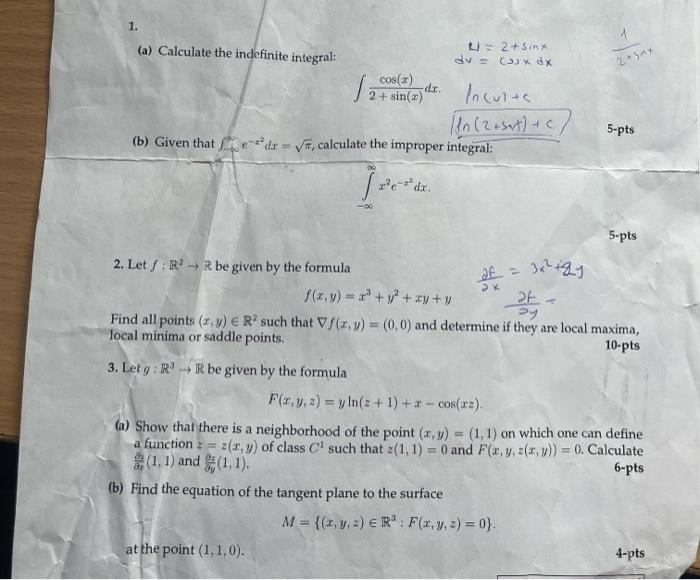 1.
(a) Calculate the indefinite integral:
u = 2 + sinx
dv = cosx dx
1/(2+sin+
∫ cos(x)/(2 + sin(x)) dx.
ln(u) + c
ln(2+sinx) + c
5-pts
(b) Given that ∫_{-∞}^{∞} e^{-x²} dx = √π, calculate the improper integral:
∫_{-∞}^{∞} x²e^{-x²} dx.
5-pts
2. Let f : ℝ² → ℝ be given by the formula
∂f/∂x = 3x² + y
f(x, y) = x³ + y² + xy + y
∂f/∂y =
Find all points (x, y) ∈ ℝ² such that ∇f(x, y) = (0, 0) and determine if they are local maxima,
local minima or saddle points.
10-pts
3. Let g : ℝ³ → ℝ be given by the formula
F(x, y, z) = y ln(z + 1) + x − cos(xz).
(a) Show that there is a neighborhood of the point (x, y) = (1, 1) on which one can define
a function z = z(x, y) of class C¹ such that z(1, 1) = 0 and F(x, y, z(x, y)) = 0. Calculate
∂z/∂x (1, 1) and ∂z/∂y (1, 1).
6-pts
(b) Find the equation of the tangent plane to the surface
M = {(x, y, z) ∈ ℝ³ : F(x, y, z) = 0}.
at the point (1, 1, 0).
4-pts